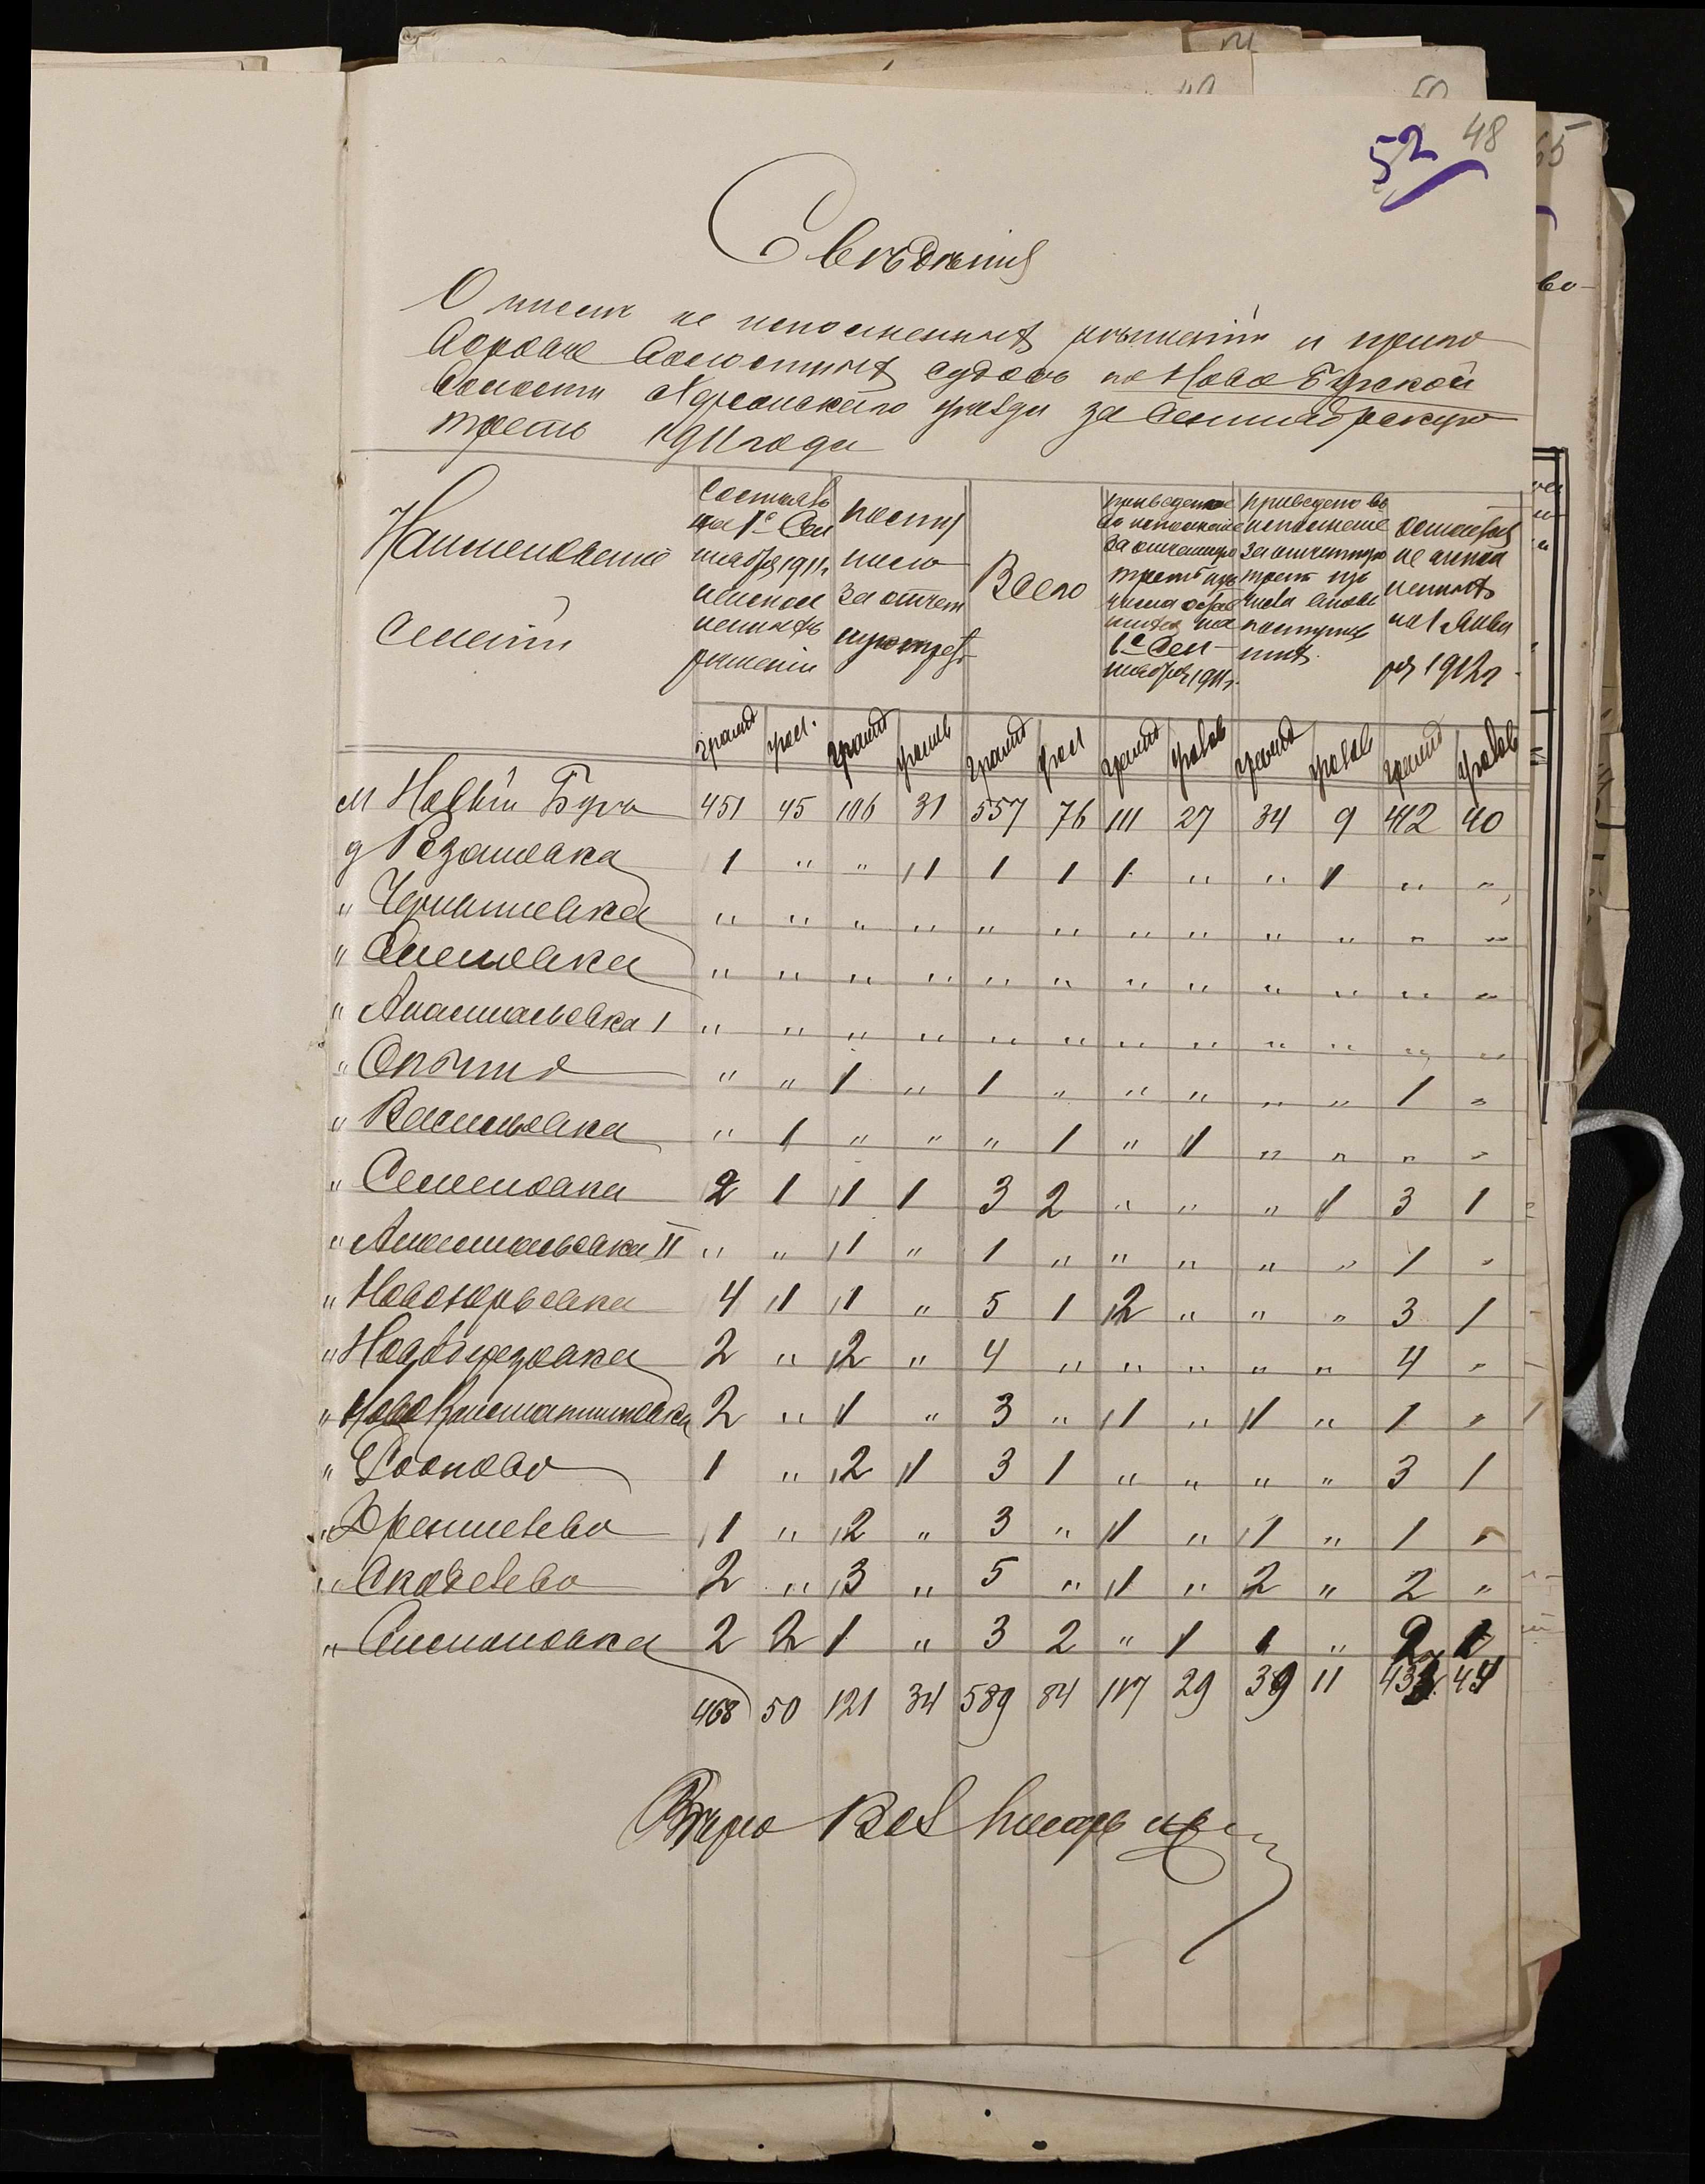 52 48
Свѣдѣнія
О числѣ не исполненныхъ рѣшеній и приго
воровъ волостныхъ судовъ по Ново Бугской
волости Херсонскаго уѣзда за Сентябрскую
треть 1911 года
Наименованіе селеній
Состояло на 1е Сентября 1911 г. неисполненныхъ рѣшеній
поступило за отчетную треть
Всего
приведенное во исполненіе за отчетную треть изъ числа остав на 1е Сентября 1911 г.
приведено во исполненіе за отчетную треть изъ числа вновь поступив
остается не исполненныхъ на 1 Января 1912 г.
гражд угол. гражд уголь гражд угол гражд уголов гражд уголов гражд уголов
м Новый Бугъ 451 45 106 31 557 76 111 27 34 9 412 40
д Розановка 1 " " 1 1 1 1 " " 1 " "
" " " " " " " " " " " " "
" " " " " " " " " " " " "
" Анастасьевка I " " " " " " " " " " " "
" " " 1 " 1 " " " " " 1 "
" Васильевка " 1 " " " 1 " 1 " " " "
" Семеновка 2 1 1 1 3 2 " " " 1 3 1
" Анастасьевка II " " 1 " 1 " " " " " 1 "
" Новоюрьевка 4 1 1 " 5 1 2 " " " 3 1
" 2 " 2 " 4 " " " " " 4 "
" НовоКонстантиновка 2 " 1 " 3 " 1 " 1 " 1 "
" 1 " 2 1 3 1 " " " " 3 1
" 1 " 2 " 3 " 1 " 1 " 1 "
" 2 " 3 " 5 " 1 " 2 " 2 "
" 2 2 1 " 3 2 " 1 1 " 2 1
468 50 121 34 589 84 117 29 39 11 433 44
Вѣрно Вол Писарь